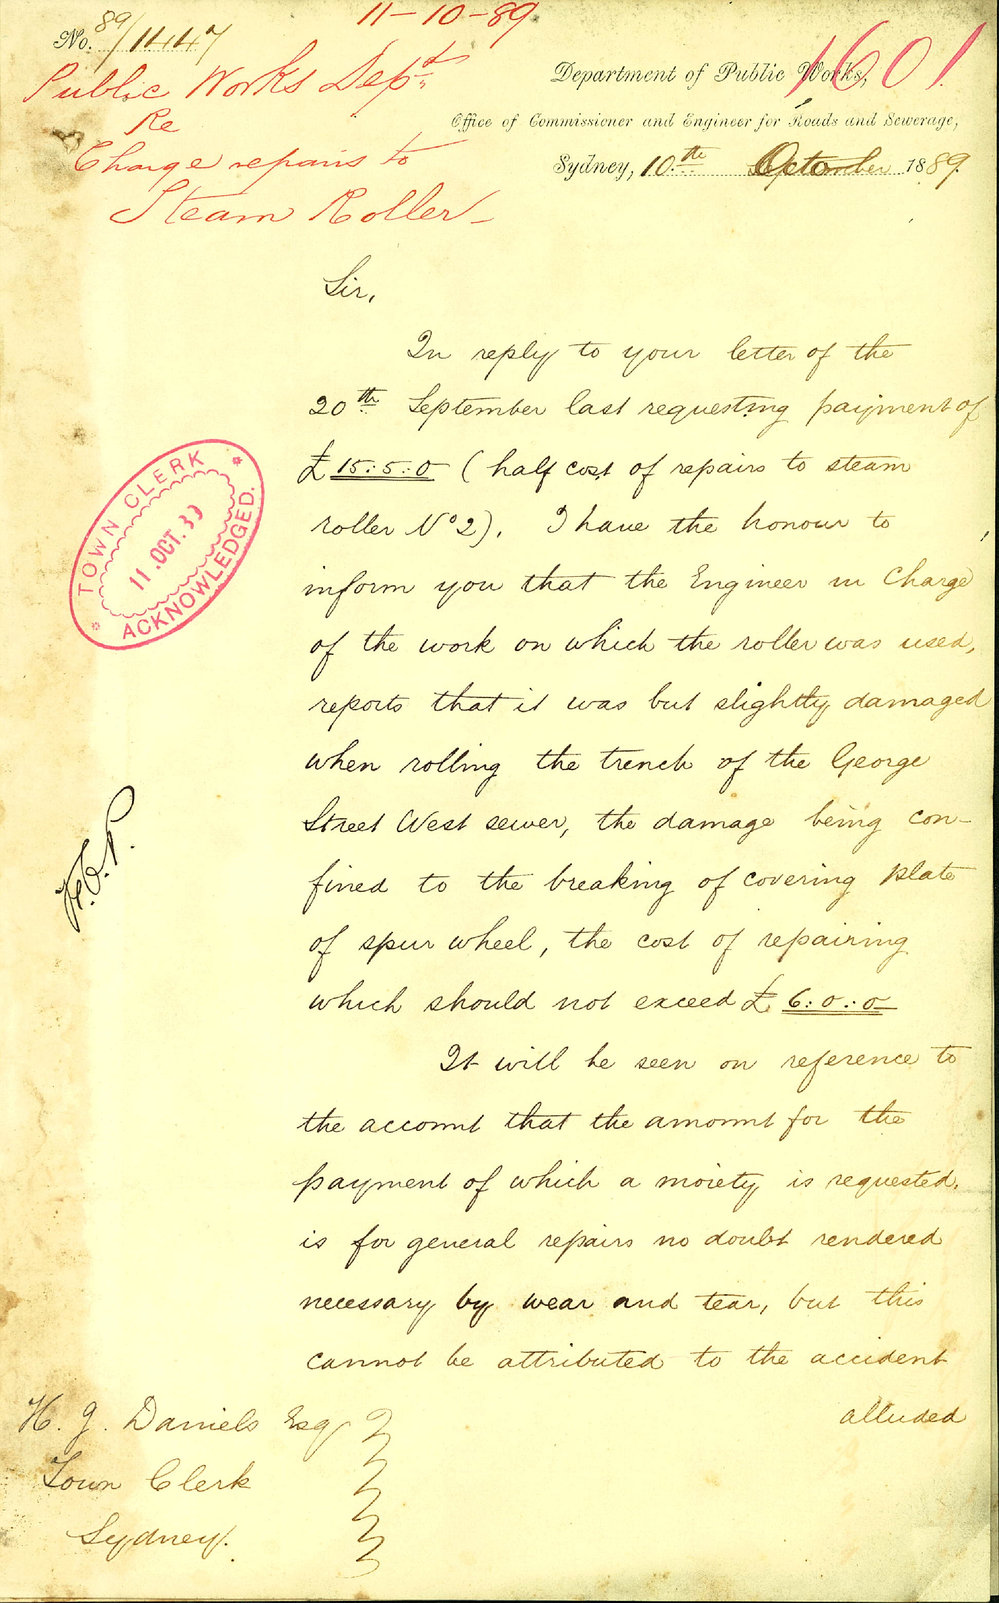 11-10-89
No. 89/1447
1601
Public Works Dept.
Re
Charge repairs to
Steam Roller
Department of Public Works,
Office of Commissioner and Engineer for Roads and Sewerage,
Sydney, 10th October 1889.
Sir,
In reply to your letter of the
20th September last requesting payment of
£15:5:0 (half cost of repairs to steam
roller No 2). I have the honour to
inform you that the Engineer in Charge
of the work on which the roller was used,
reports that it was but slightly damaged
when rolling the trench of the George
Street West sewer, the damage being con-
fined to the breaking of covering plate
of spur wheel, the cost of repairing
which should not exceed £6:0:0
It will be seen on reference to
the account that the amount for the
payment of which a moiety is requested,
is for general repairs no doubt rendered
necessary by wear and tear, but this
cannot be attributed to the accident
alluded
TOWN CLERK
11 .OCT.
ACKNOWLEDGED.
H. J. Daniels Esq
Town Clerk
Sydney.